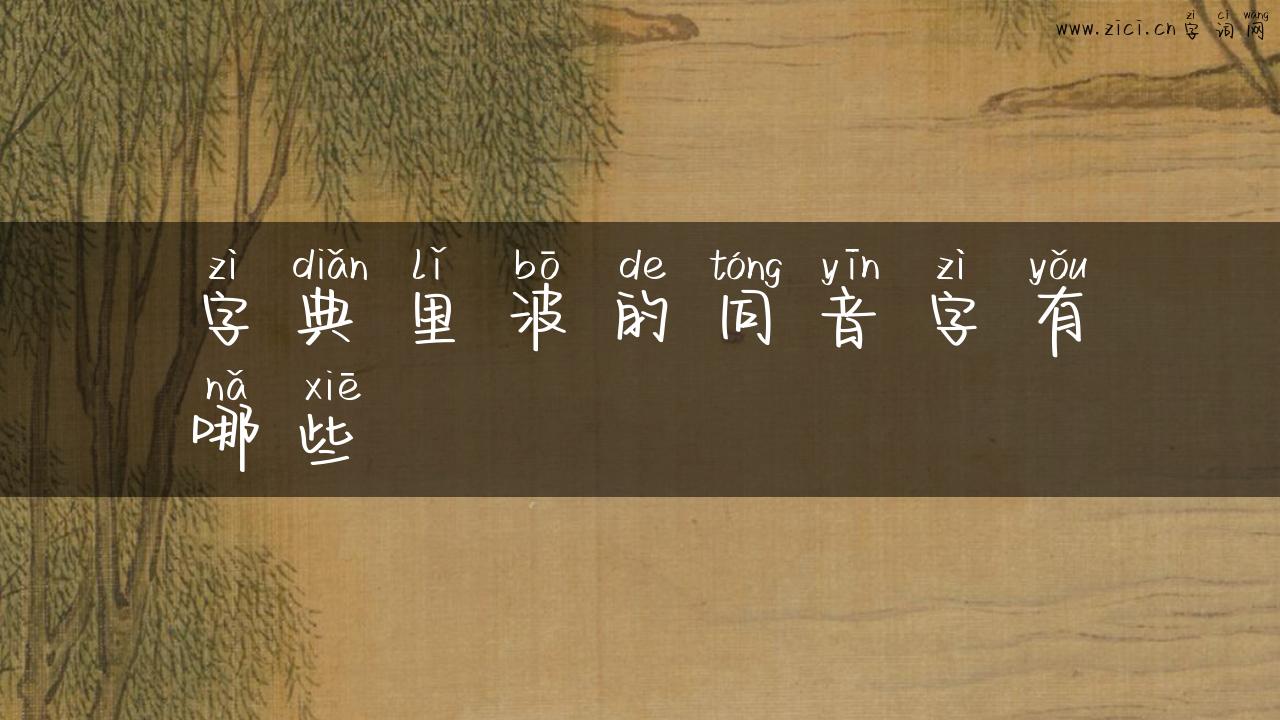 zì cí wǎng
www.zici.cn字词网
zì diǎn lǐ bō de tóng yīn zì yǒu
字典里波的同音字有
nǎ xiē
哪些